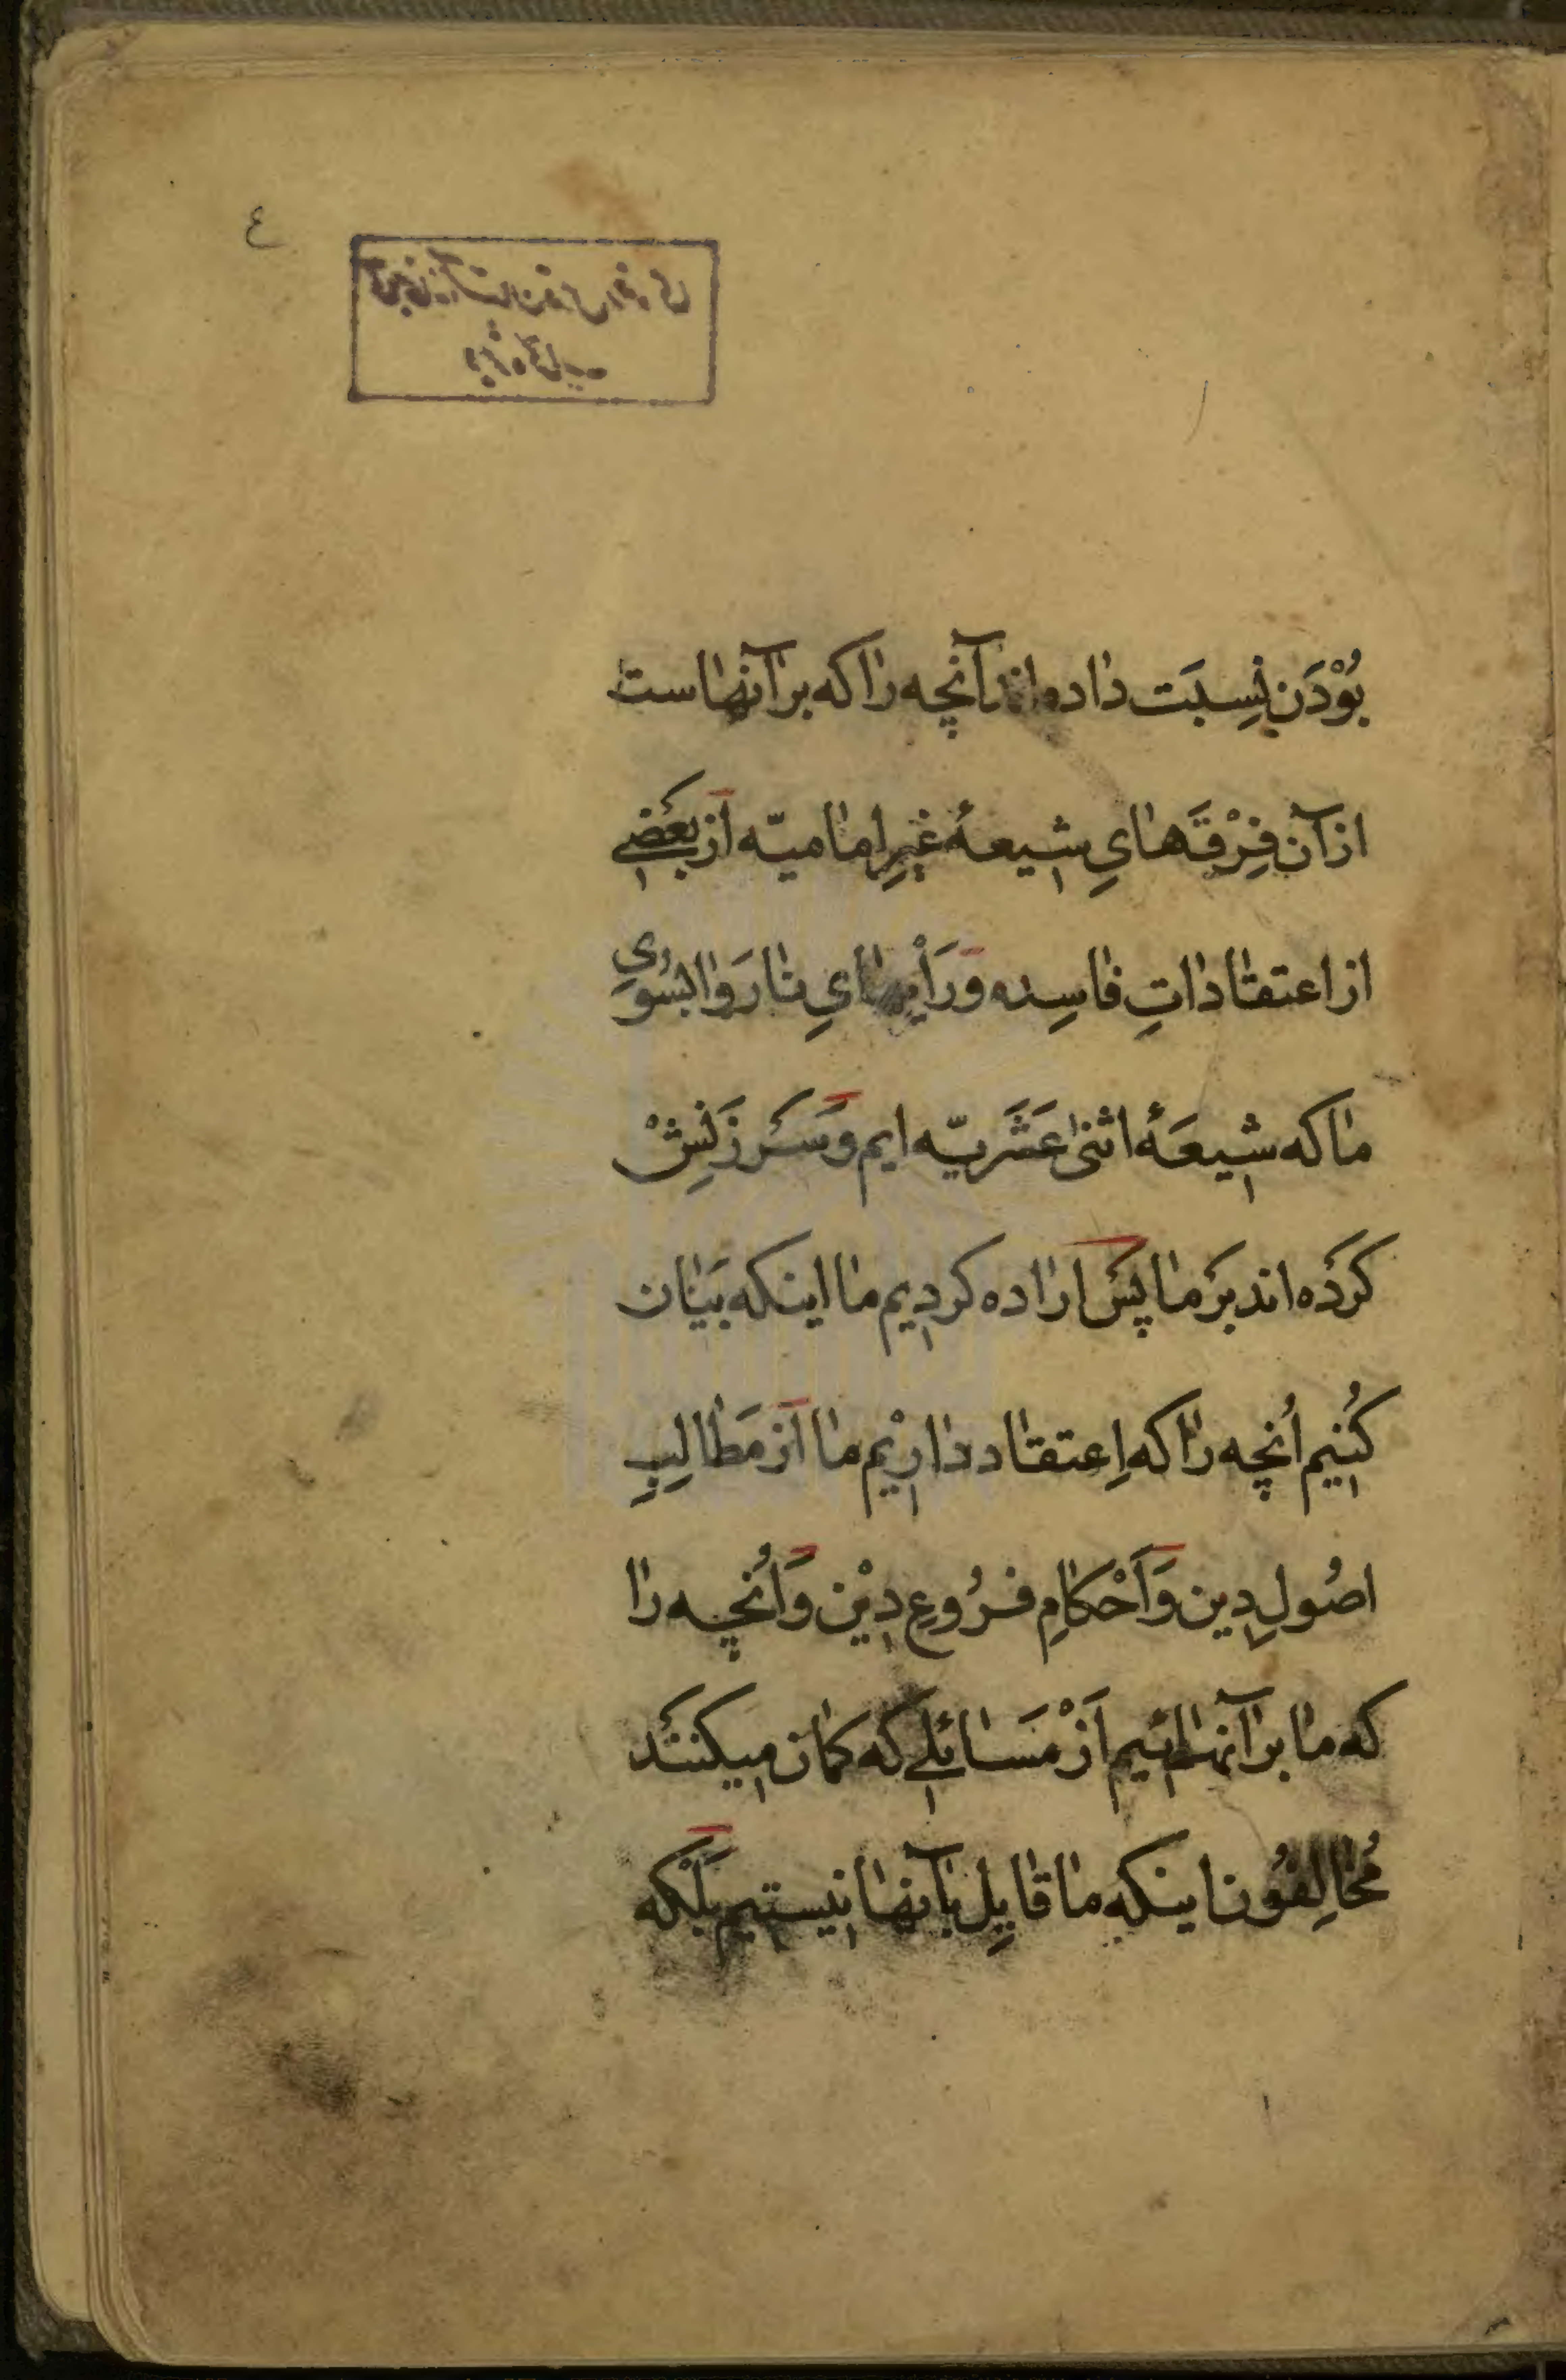 ٤
بُوْدَن نِسِبَت داده‌اند آنچه را که بر آنها است
از آن فِرْقَه‌هایِ شیعهٔ غیرِ امامیّه از بَعْضی
از اعتقاداتِ فاسِده وَ رَأْیهایِ نارَوا بسُوی
ما که شیعَهٔ اثنی عَشَریّه ایم وَ سَرْزَنِشْ
کرْدَه‌اند بَرْ ما پَسْ اراده کردیم ما اینکه بَیان
کُنیم اُنچه را که اِعتقاد داریْم ما از مَطالِبِ
اصُولِ دین وَ اَحْکامِ فُرُوعِ دیْن وَ اُنچه را
که ما بر آنهائیم اَزْ مَسائلی که کمان میکنَنْد
مُخالِفُون اینکه ما قایِل بآنها نیستیم بَلْکه